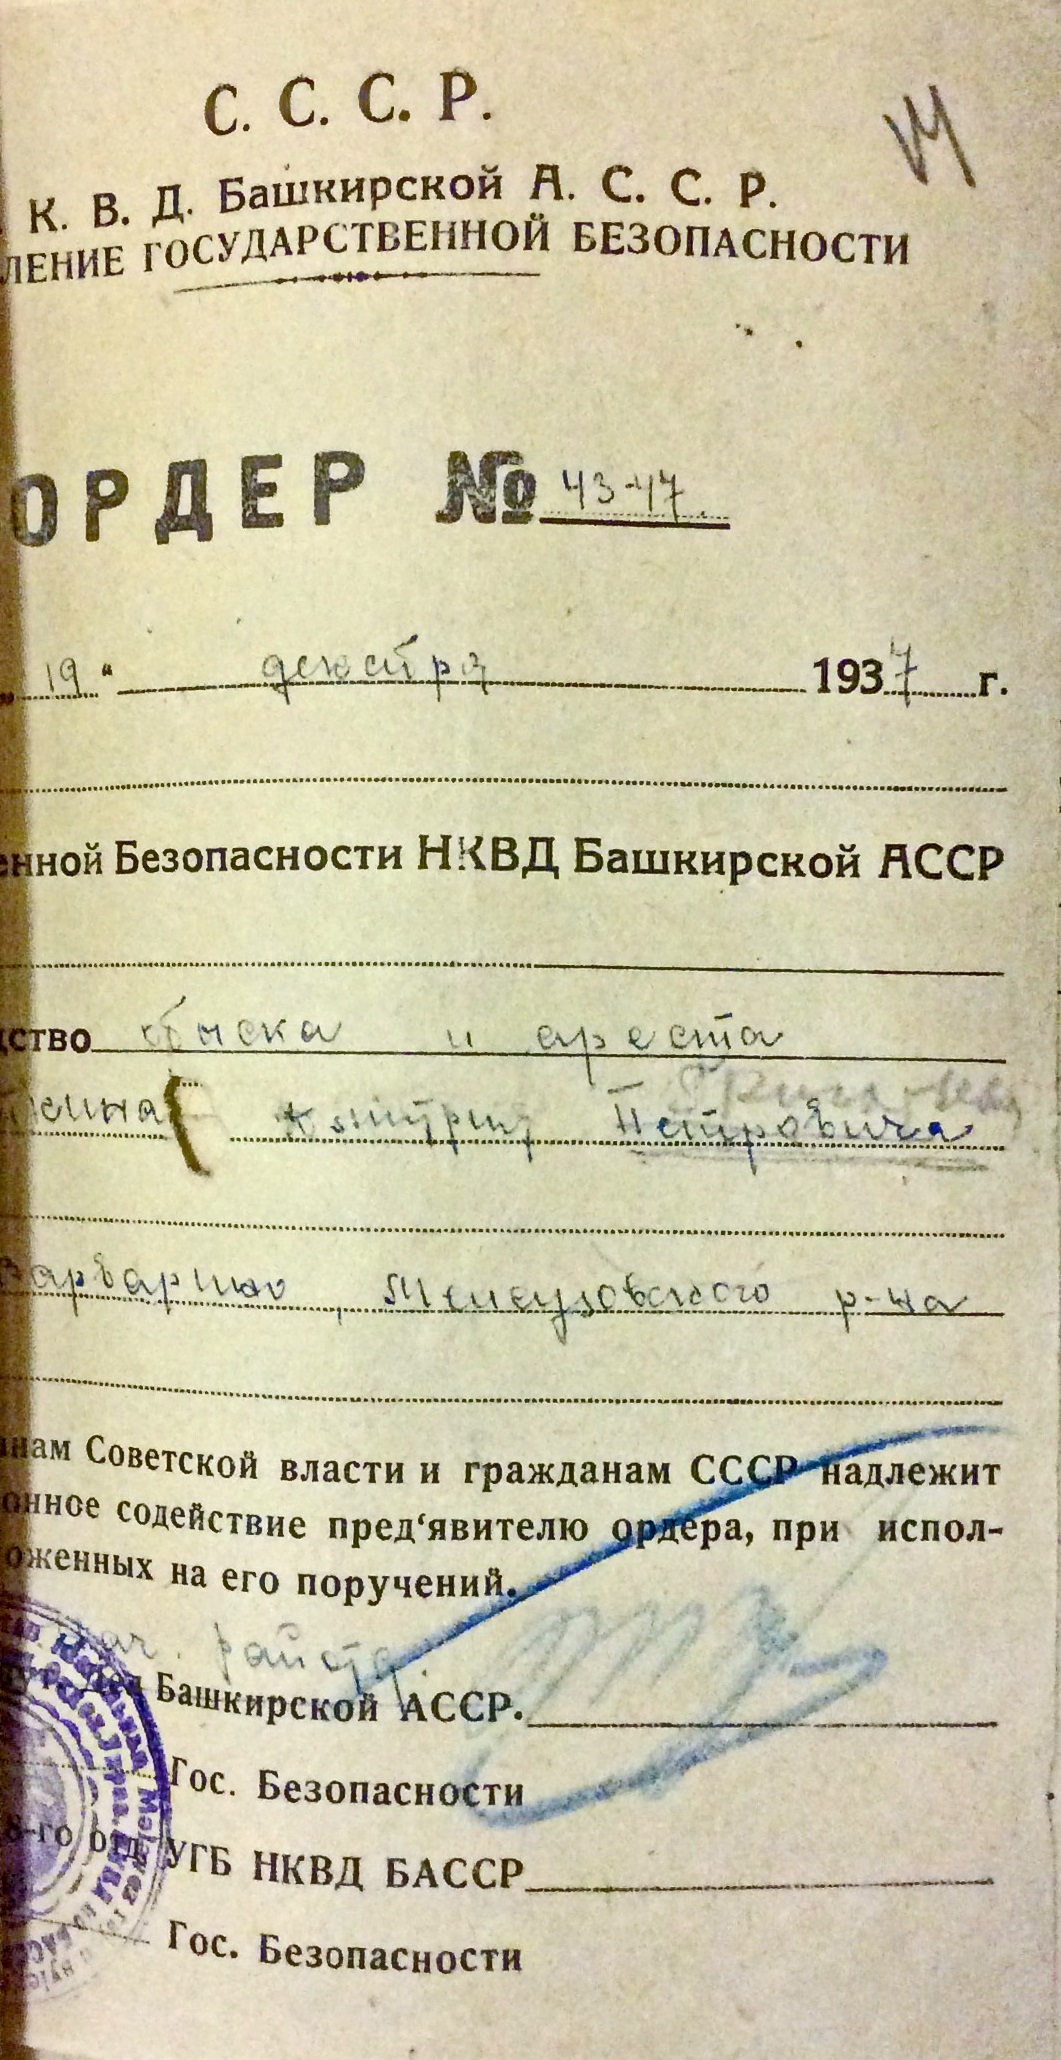 С. С. С. Р.
К. В. Д. Башкирской А. С. С. Р.
ЛЕНИЕ ГОСУДАРСТВЕННОЙ БЕЗОПАСНОСТИ
ОРДЕР № 43-47.
„19“ декабря 1937 г.
енной Безопасности НКВД Башкирской АССР
дство обыска и ареста
Петровича
Варварино, Мелеузовского р-на
нам Советской власти и гражданам СССР надлежит
онное содействие пред‘явителю ордера, при испол-
оженных на его поручений.
нач. райотд.
Башкирской АССР.
Гос. Безопасности
8-го отд. УГБ НКВД БАССР
Гос. Безопасности